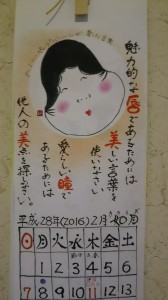 魅力的な唇であるためには
美しい言葉を
使いなさい
愛らしい瞳で
あるためには
他人の美点を探しなさい
平成28年(2016)2月
日月火水木金土
1 2 3 4 5 6
7 8 9 10 11 12 13